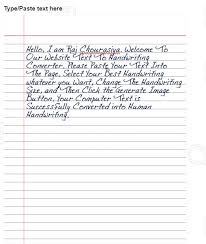 Type/Paste text here
Hello, I am Raj Chourasiya. Welcome To
Our Website Text To Handwriting
Converter. Please Paste Your Text Into
The Page, Select Your Best Handwriting
whatever you Want, Change The Handwriting
Size, and Then Click the Generate Image
Button. Your Computer Text is
Successfully Converted into Human
Handwriting.